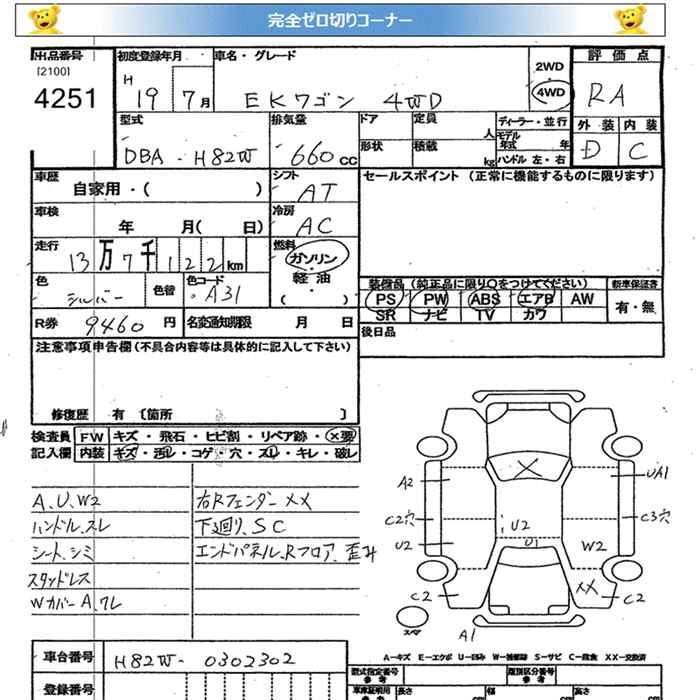 完全ゼロ切りコーナー
出品番号 初度登録年月 車名・グレード 評価点
[2100]
4251
H 19 7月 EKワゴン 4WD 2WD 4WD RA
型式 排気量 ドア 定員 人 ディーラー・並行 外装 内装
モデル年式 年
DBA-H82W 660cc 形状 積載 kg ハンドル 左・右 D C
車歴 シフト セールスポイント (正常に機能するものに限ります)
自家用・( ) AT
車検 冷房
年 月( 日) AC
走行 燃料
13万7千122km ガソリン
軽油
( )
色 色替 色コード 装備品 (純正品に限り○をつけてください) 新車保証書
シルバー A31 PS PW ABS エアB AW 有・無
SR ナビ TV カワ
R券 9460円 名変通知期限 月 日 後日品
注意事項申告欄(不具合内容等は具体的に記入して下さい)
修復歴 有 〔箇所 〕
検査員 FW キズ・飛石・ヒビ割・リペア跡・×要
記入欄 内装 キズ・汚レ・コゲ・穴・スレ・キレ・破レ
A、U、W2 右Rフェンダー XX
ハンドル、スレ 下廻り、SC
シート、シミ エンドパネル、Rフロア、歪み
スタッドレス
Wカバー A、ワレ
A2 UA1
C2穴 C3穴
U2 U2 U1 W2
C2 XX C2
スペア A1
A-キズ E-エクボ U-凹み W-補修跡 S-サビ C-腐食 XX-交換済
車台番号 H82W-0302302 型式指定番号 参考 類別区分番号 参考
登録番号 車庫証明用 参考 長さ 幅 高さ